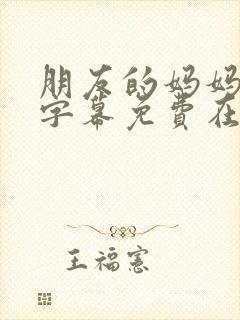 朋友的妈妈
字幕免費在
王福憲